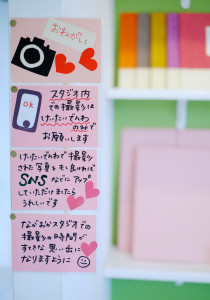 おねがい
OK
スタジオ内
での撮影は
けいたいでんわ
のみで
お願いします
けいたいでんわで撮影
された写真をもし良ければ
SNSなどにアップ
していただけましたら
うれしいです
ながおかスタジオでの
撮影の時間が
すてきな思い出に
なりますように